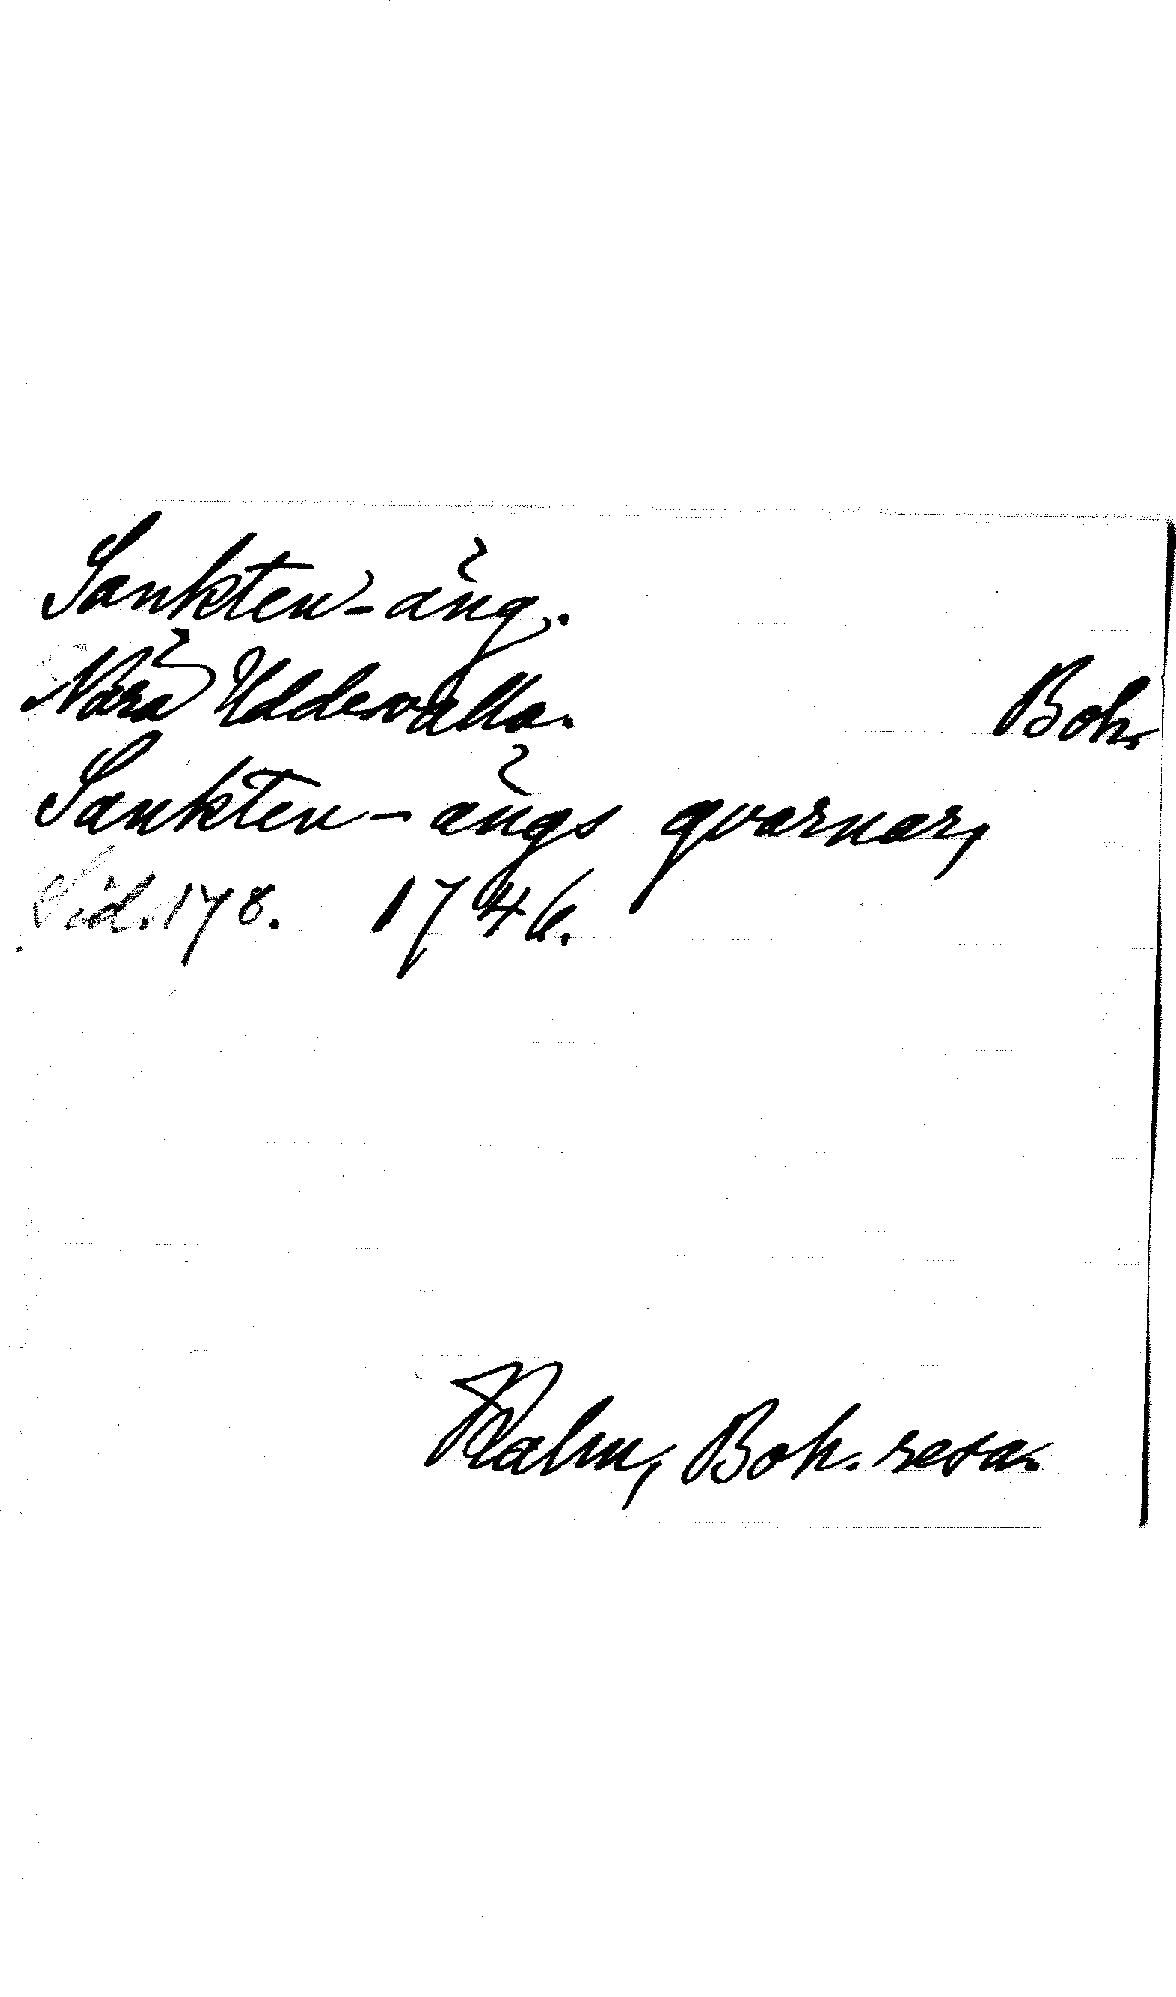 Sankten-äng.
Nära Uddevalla. Boh.
Sankten-ängs qvarnar,
Sid. 178. 1746.
Kalm, Boh. resa.